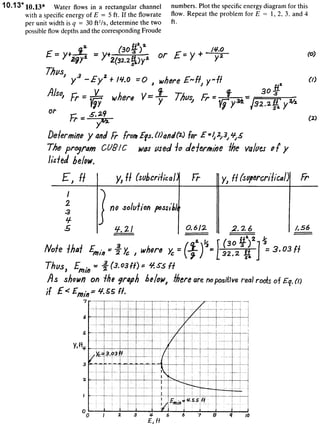 10.13* 10.13* Water flows in a rectangular channel
with a specific energy of E = 5 ft. If the flowrate
per unit width is q = 30 ft²/s, determine the two
possible flow depths and the corresponding Froude
numbers. Plot the specific energy diagram for this
flow. Repeat the problem for E = 1, 2, 3, and 4
ft.
E = y + q²/2gy² = y + (30 ft²/s)²/2(32.2 ft/s²)y² or E = y + 14.0/y² (0)
Thus,
y³ - Ey² + 14.0 = 0 , where E~ft, y~ft (1)
Also, Fr = V/√gy where V = q/y Thus, Fr = q/√g y^3/2 = 30 ft²/s / √32.2 ft/s² y^3/2
or
Fr = 5.29/y^3/2 (2)
Determine y and Fr from Eqs.(1) and (2) for E=1,2,3,4,5
The program CUBIC was used to determine the values of y
listed below.
E, ft y, ft (subcritical) Fr y, ft (supercritical) Fr
1
2
3
4
no solution possible
5 4.21 0.612 2.26 1.56
Note that Emin = 3/2 yc , where yc = (q²/g)^1/3 = [(30 ft²/s)²/32.2 ft/s²]^1/3 = 3.03 ft
Thus, Emin = 3/2 (3.03 ft) = 4.55 ft
As shown on the graph below, there are no positive real roots of Eq.(1)
if E < Emin = 4.55 ft.
7
6
5
y, ft
4
yc = 3.03 ft
3
2
1
Emin = 4.55 ft
0
0 1 2 3 4 5 6 7 8 9 10
E, ft